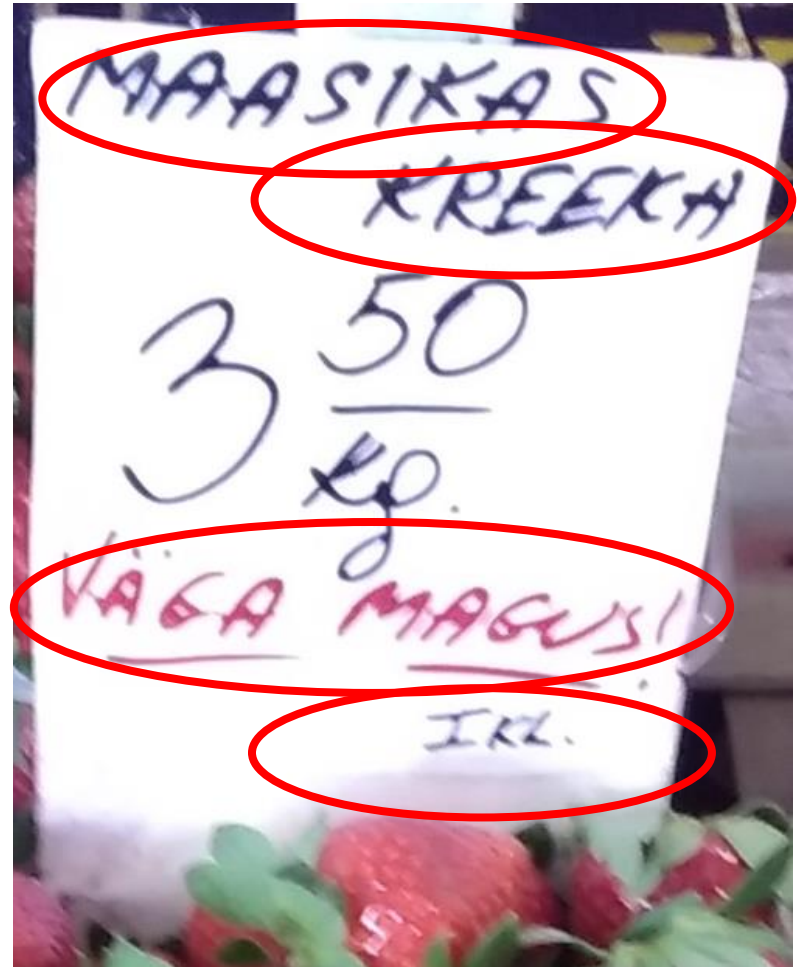 MAASIKAS
KREEKA
3 50
kg.
VÄGA MAGUS!
I KL.